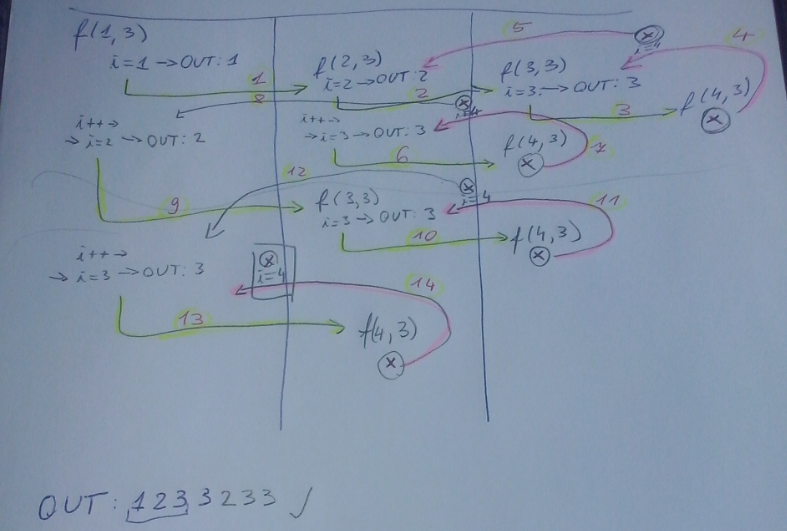 f(1,3)
i=1 → OUT: 1
1
f(2,3)
i=2 → OUT: 2
5
⊗
i=4
4
f(3,3)
i=3 → OUT: 3
2
3
f(4,3)
⊗
8
i++ →
→ i=2 → OUT: 2
i++ →
→ i=3 → OUT: 3
⊗
i=4
6
f(4,3)
⊗
7
9
12
f(3,3)
i=3 → OUT: 3
⊗
i=4
10
f(4,3)
⊗
11
i++ →
→ i=3 → OUT: 3
⊗
i=4
13
14
f(4,3)
⊗
OUT: 1233233 ✓